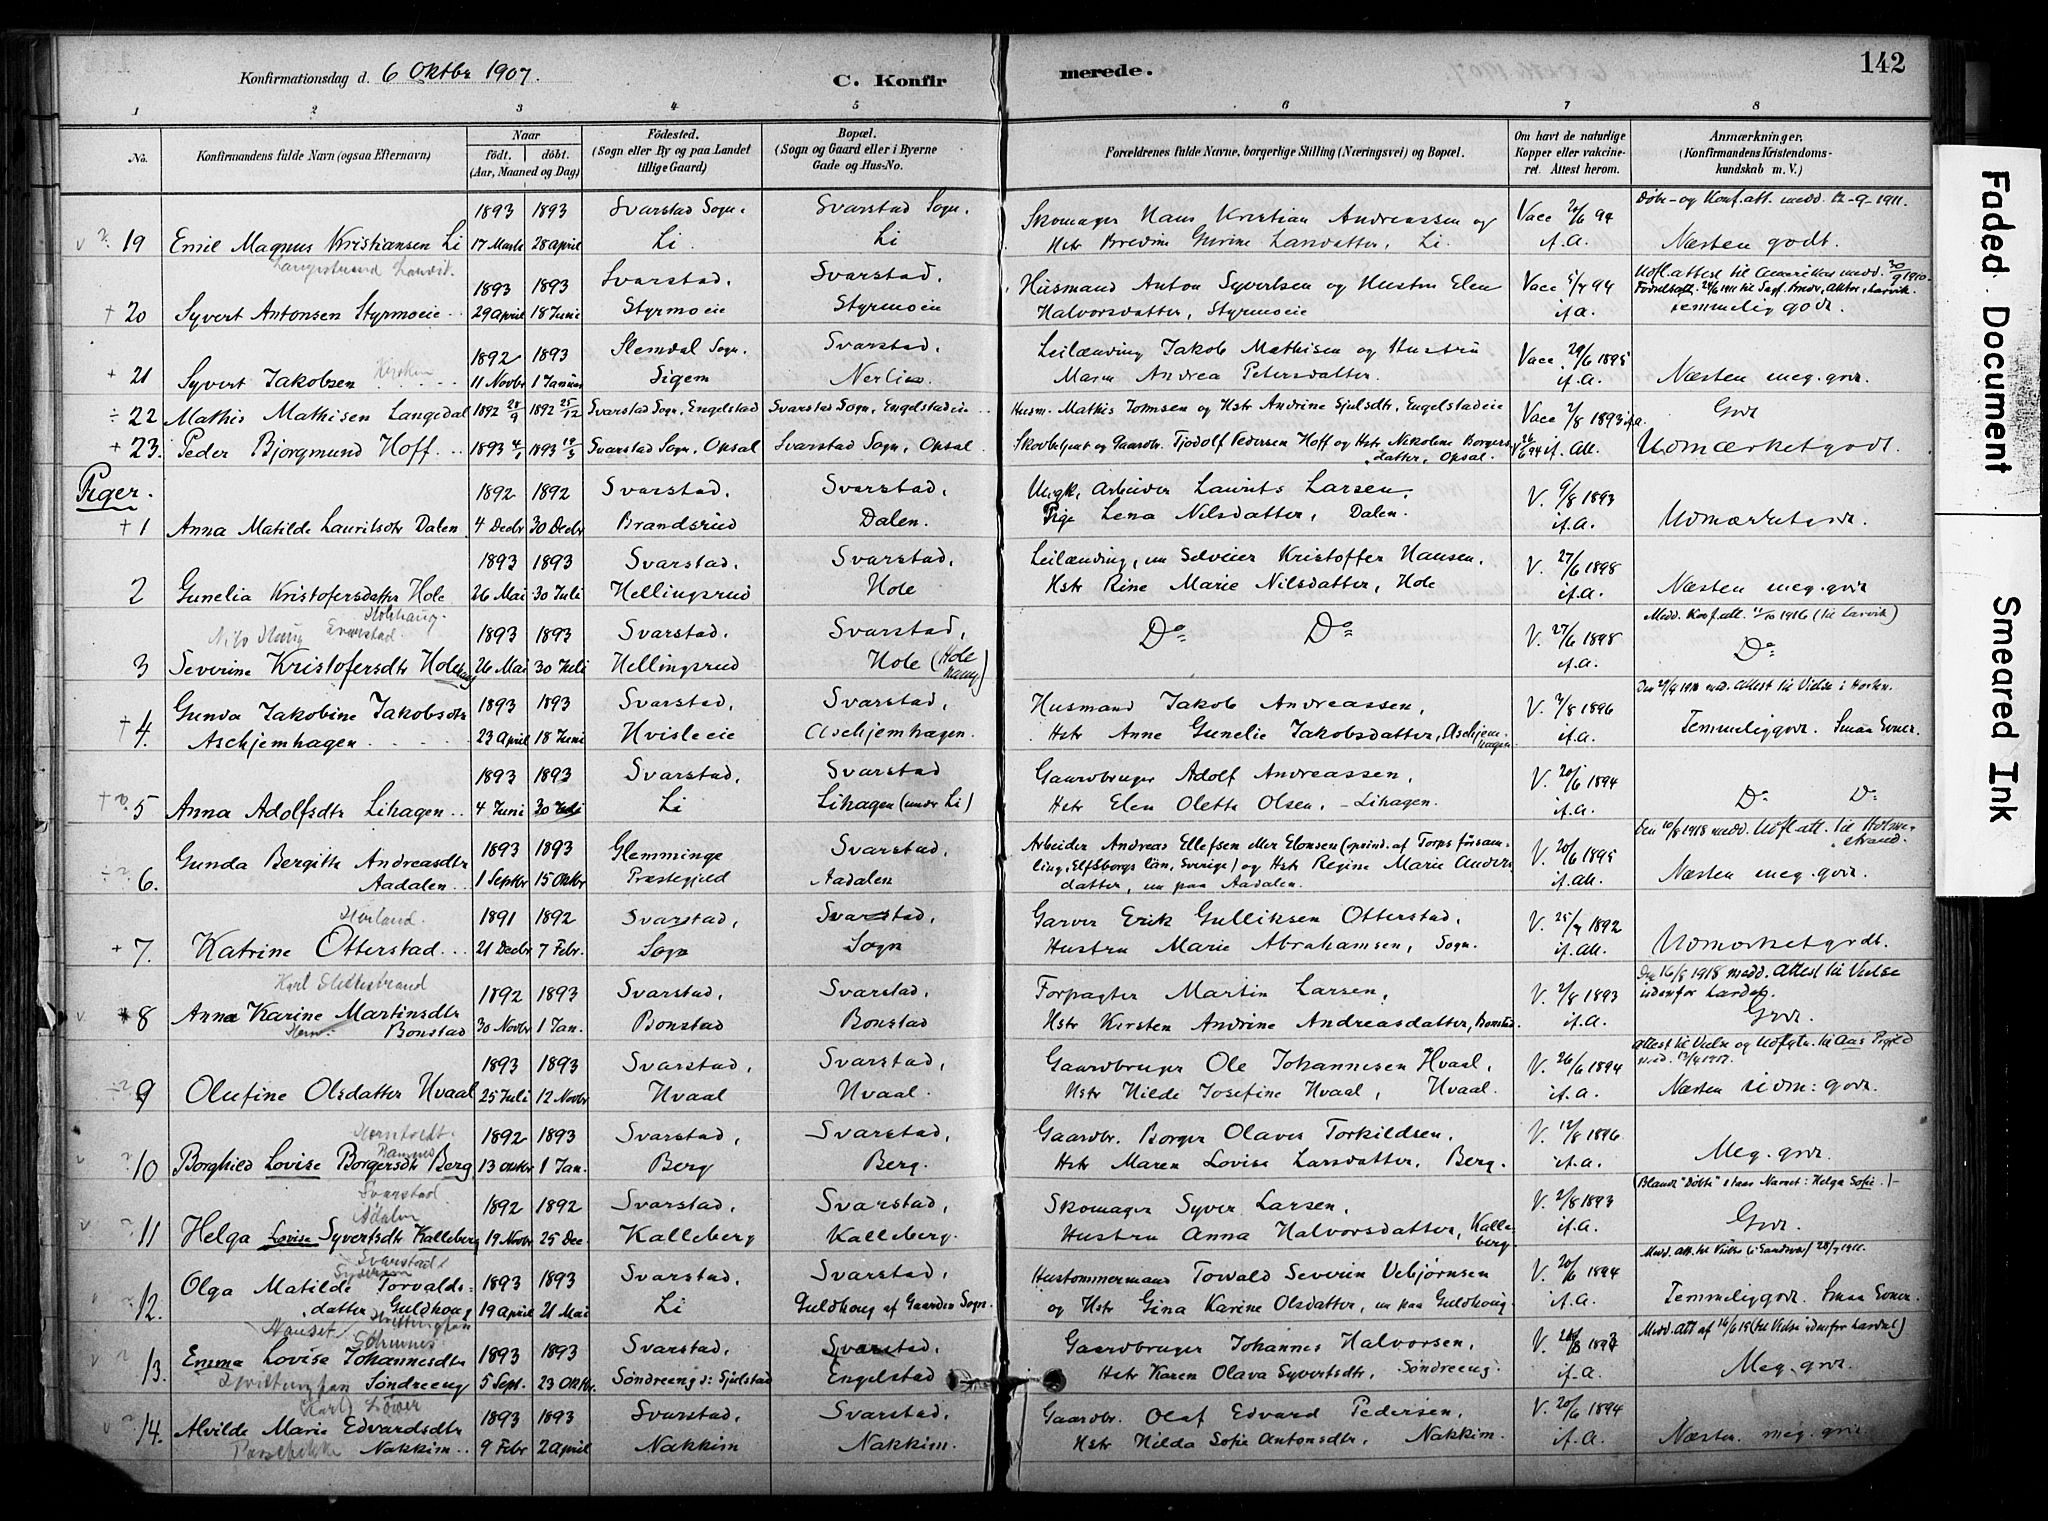 142
Konfirmationsdag d. 6 Oktbr 1907.
C. Konfirmerede.
1 2 3 4 5 6 7 8
No.
Konfirmandens fulde Navn (ogsaa Efternavn)
Naar
født. døbt.
(Aar, Maaned og Dag)
Fødested.
(Sogn eller By og paa Landet
tillige Gaard)
Bopæl.
(Sogn og Gaard eller i Byerne
Gade og Hus-No.
Forældrenes fulde Navne, borgerlige Stilling (Næringsvei) og Bopæl.
Om havt de naturlige
Kopper eller vakcine-
ret. Attest herom.
Anmærkninger.
(Konfirmandens Kristendoms-
kundskab m. V.)
1893 1893 Svarstad Sogn. Svarstad Sogn. Skomager Hans Kristian Andreassen og Vacc 20/6 94 Døbe- og Konf.att. medd. 12-9-1911.
19 Emil Magnus Kristiansen Li 17 Marts 28 april Li. Li Hstr Bredine Gurine Larsdatter, Li. if. A. Næsten godt.
1893 1893 Svarstad. Svarstad. Husmand Anton Syvertsen og Hustru Elen Vacc 5/7 94 Udfl.attest til Amerika medd. 30/9 1910.
+ 20 Syvert Antonsen Styrmoeie 29 april 18 Juni Styrmoeie Styrmoeie Halvorsdatter, Styrmoeie if. A. temmelig godt.
1892 1893 Slemdal Sogn. Svarstad. Leilænding Jakob Mathisen og Hustru Vacc. 29/6 1895
+ 21 Syvert Jakobsen 11 Novbr 1 Januar Sigem Nerlia Maren Andrea Petersdatter. if. A. Næsten meg. godt.
÷ 22 Mathis Mathisen Langedal 1892 28/9 1892 25/12 Svarstad Sogn, Engelstad Svarstad Sogn, Engelstadeie Husm. Mathis Johnsen og Hstr Andrine Gjulsdtr, Engelstadeie Vacc 2/8 1893 if. A. Godt
+ 23. Peder Bjorgmund Hoff 1893 Svarstad Sogn, Opsal Svarstad Sogn, Opsal Skovbetjent og Gaardbr. Tjodolf Pedersen Hoff og Hstr Nikoline Borgers- if. Att. Udmærket godt.
datter, Opsal.
Piger.
1892 1892 Svarstad. Svarstad. Ungk. Arbeider Laurits Larsen, V. 9/8 1893
+ 1 Anna Matilde Lauritsdtr Dalen 4 Decbr 30 Decbr Brandsrud Dalen. Pige Lena Nilsdatter, Dalen. if. A. Udmærket godt.
1893 1893 Svarstad. Svarstad. Leilænding, nu Selveier Kristoffer Hansen. V. 27/6 1898
2 Gunelia Kristofersdatter Hole 26 Mai 30 Juli Hellingsrud Hole Hstr Rine Marie Nilsdatter, Hole if. A. Næsten meg. godt
Holehaug.
1893 1893 Svarstad. Svarstad. Do Do V. 27/6 1898 Medd. Konf.att. 11/10 1916 (til Larvik)
3 Severine Kristofersdtr Holehaug 26 Mai 30 Juli Hellingsrud Hole (Hole haug) if. A. Do
Gunda Jakobine Jakobsdtr 1893 1893 Svarstad. Svarstad. Husmand Jakob Andreassen, V. 3/8 1896 Attest til Vielse i Horten.
+ 4. Aschjemhagen 23 April 18 Juni Hvisleeie Aschjemhagen. Hstr Anne Gunelie Jakobsdatter, Aschjemhagen if. A. Temmelig godt. Smaa Evner.
1893 1893 Svarstad. Svarstad Gaardbruger Adolf Andreassen, V. 20/6 1894
+ 5 Anna Adolfsdtr Lihagen 4 Juni 30 Juli Li Lihagen (under Li) Hstr Elen Olette Olsen, - Lihagen. if. A. Do Do
Gunda Bergithe Andreasdtr 1893 1893 Glemminge Svarstad. Arbeider Andreas Ellefsen eller Elonsen (oprind. af Torps församling, V. 20/6 1895 Den 10/8 1918 medd. Udfl.att. til Holmestrand.
÷ 6. Aadalen 1 Septbr 15 Oktbr Præstegjeld Aadalen Elfsborgs län, Sverige) og Hstr Regine Marie Anders- if. Att. Næsten meg. godt.
datter, nu paa Aadalen.
1891 1892 Svarstad. Svarstad. Garver Erik Gulliksen Otterstad. V. 25/7 1892
+ 7. Katrine Otterstad 21 Decbr 7 Febr. Sogn Sogn Hustru Marie Abrahamsen, Sogn. if. Att. Udmærket godt.
1892 1893 Svarstad. Svarstad. Forpagter Martin Larsen, V. 2/8 1893 Den 16/8 1918 medd. Attest til Vielse udenfor Lardal.
8 Anna Karine Martinsdtr Bonstad 30 Novbr 1 Jan. Bonstad Bonstad Hstr Kirsten Andrine Andreasdatter, Bonstad. if. A. Godt.
1893 1893 Svarstad. Svarstad. Gaardbruger Ole Johannesen Hvaal, V. 26/6 1894 Attest til Vielse og Udflytn. til Aas Pgjeld
÷ 9 Olufine Olsdatter Hvaal 25 Juli 12 Novbr Hvaal Hvaal. Hstr Hilde Josefine Hvaal, Hvaal. if. A. Næsten udm: godt.
1892 1893 Svarstad. Svarstad. Gaardbr. Borger Olaves Torkildsen, V. 12/8 1896
10 Borghild Lovise Borgersdtr Berg 13 oktbr 1 Jan. Berg Berg. Hstr Maren Lovise Larsdatter, Berg. if. A. Meg. godt.
Svarstad
1892 1892 Svarstad. Svarstad. Skomager Syver Larsen, V. 2/8 1893 (Blandt "Døbte" staar Navnet: Helga Sofie.)
11 Helga Lovise Syvertsdtr Kalleberg 19 Novbr 25 Dec. Kalleberg Kalleberg. Hustru Anna Halvorsdatter, Kalleberg. if. A. Godt.
Svarstad
Olga Matilde Torvalds- 1893 1893 Svarstad. Svarstad. Hustømmermand Torvald Severin Vebjørnsen V. 20/6 1894 Medd. att. til Vielse (i Sandsvær) 28/7 1911.
12. datter Guldhoug 19 April 21 Mai Li Guldhoug af Gaarden Sogn. og Hstr Gina Karine Olsdatter, nu paa Guldhoug. if. A. Temmelig godt. Smaa Evner.
Emma Lovise Johannesdtr 1893 1893 Svarstad. Svarstad Gaardbruger Johannes Halvorsen, V. Medd. Att af 16/6 19 (til Vielse udenfor Lardal)
13. Søndreeng 5 Sept. 23 Oktbr. Søndreeng d: Gjelstad Engelstad Hstr Karen Olava Syvertsdtr, Søndreeng. if. A. Meg. godt.
Alvilde Marie Edvardsdtr 1893 1893 Svarstad. Svarstad. Gaardbr. Olaf Edvard Pedersen, V. 20/6 1894
14. Nakkim 9 Febr 2 april Nakkim Nakkim. Hstr Hilda Sofie Antonsdtr, Nakkim. if. A. Næsten meg. godt
Faded Document
Smeared Ink